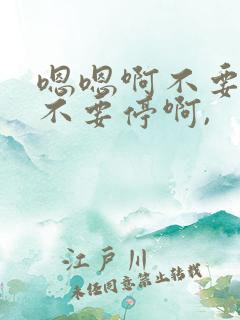 嗯嗯啊不要
不要停啊,
江戸川
未经同意禁止转载